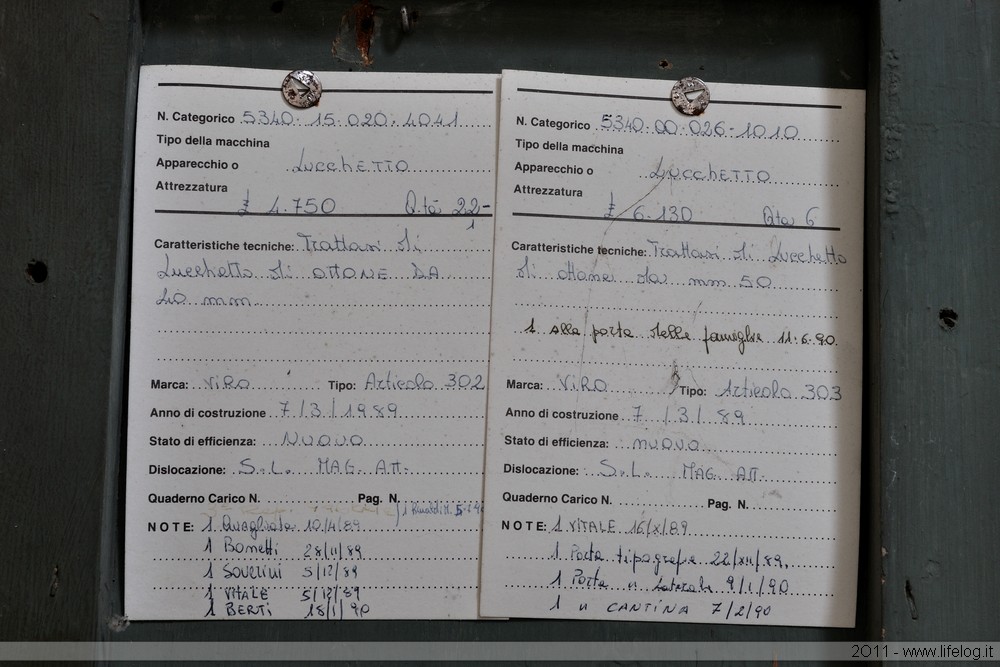 N. Categorico 5340-15-020-4041
Tipo della macchina
Apparecchio o Lucchetto
Attrezzatura
£ 4.750 Q.tà 22-
1
Caratteristiche tecniche: Trattasi di
Lucchetto di OTTONE DA
40 mm.
Marca: VIRO Tipo: Articolo 302
Anno di costruzione 7/3/1989
Stato di efficienza: NUOVO
Dislocazione: S.L. MAG. ATT.
Quaderno Carico N. Pag. N.
NOTE: 1 10/4/89
1 Bonetti 28/11/89
1 5/12/89
1 VITALE 5/12/89
1 BERTI 18/1/90
N. Categorico 5340-00-026-1010
Tipo della macchina
Apparecchio o Lucchetto
Attrezzatura
£ 6.130 Qta 6
Caratteristiche tecniche: Trattasi di Lucchetto
di ottone da mm 50
1 alla porta delle famiglie 11.6.90.
Marca: VIRO Tipo: Articolo 303
Anno di costruzione 7/3/89
Stato di efficienza: nuovo
Dislocazione: S.L. MAG. ATT.
Quaderno Carico N. Pag. N.
NOTE: 1 VITALE 16/X/89
1 Porta tipografia 22/XII/89.
1 Porta laterale 9/1/90
1 CANTINA 7/2/90
2011 - www.lifelog.it